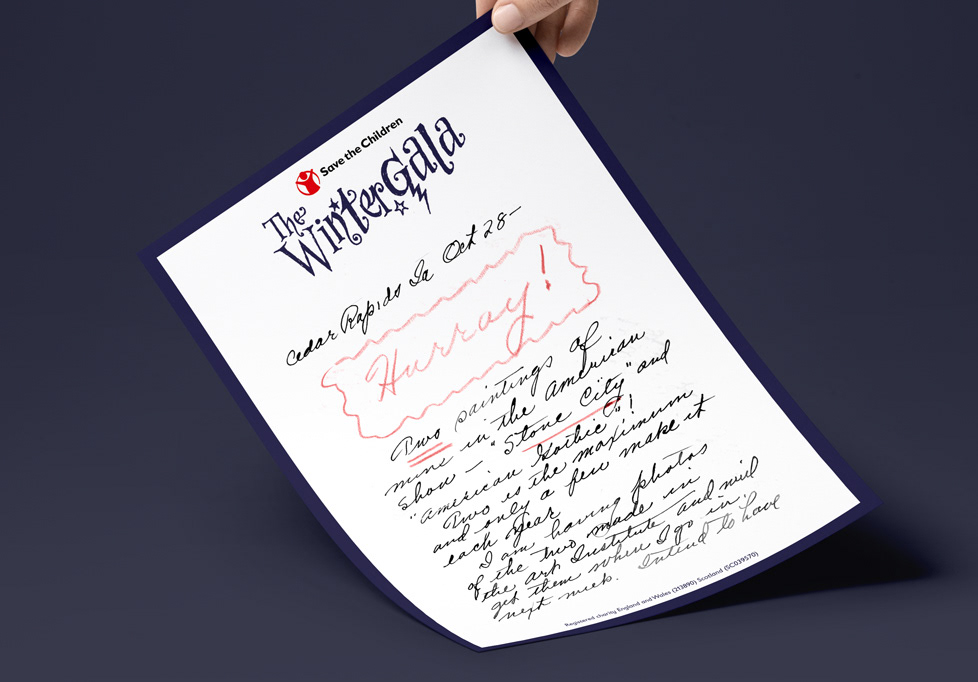 Save the Children
The
Winter Gala
Cedar Rapids Ia Oct 28—
Hurray!
Two paintings of
mine in the American
Show — "Stone City" and
"American Gothic"!
Two is the maximum
and only a few make it
each year
I am having photos
of the two made in
the art Institute and will
get them when I go in
next week. Intend to have
Registered charity England and Wales (213890) Scotland (SC039570)